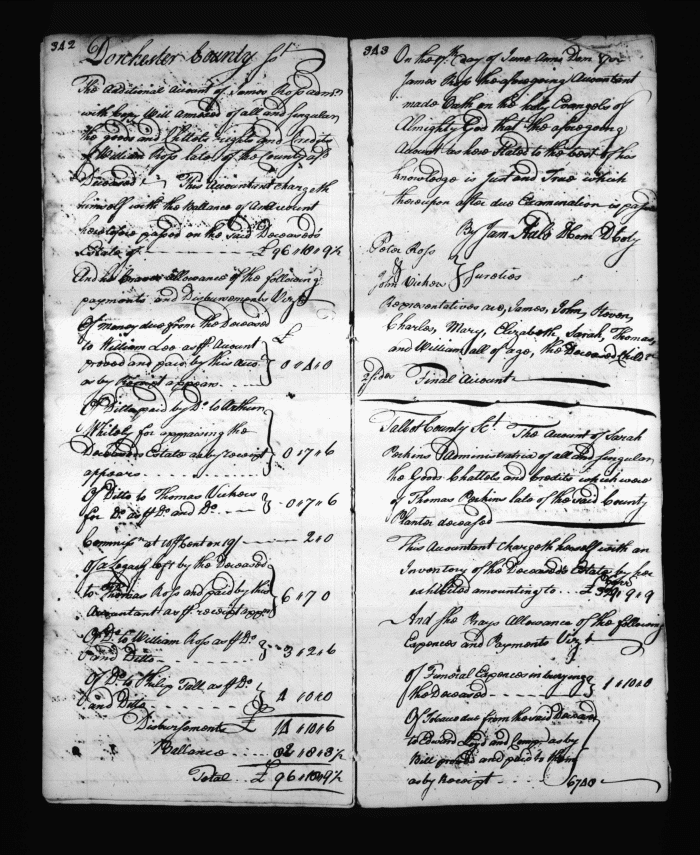 342
Dorchester County Sct
The Additional Account of James Ross Admr
with Copy Will Annexed of all and singular
the goods and Chattels rights and Credits
of William Ross late of the County aff
Deceased This Accountant chargeth
himself with the Ballance of An Account
heretofore passed on the said Deceased's
Estate of £ 96 " 18 " 9½
And he Craves Allowance of the following
payments and Disbursements Vizt
Of money due from the Deceased £
to William Lee as ₱ Account
proved and paid by this Acco
as by Receipt appears } 0 " 4 " 0
Of Ditto paid by Do to Arthur
Whitely for appraising the
Deceased's Estate as by receipt
appears } 0 " 7 " 6
Of Ditto to Thomas Vickers
for Do as ₱ Do and Do } 0 " 7 " 6
Commissn at 10 ₱ Cent on 19/ 2 " 0
Of a Legacy left by the Deceased
to Thomas Ross and paid by this
Accountant as ₱ receipt appr } 6 " 7 0
Of Do to William Ross as ₱ Do
and Ditto } 3 " 2 " 6
Of Do to Philip Tall as ₱ Do
and Ditto } 4 " 0 " 0
Disbursements £ 14 " 10 " 6
Ballance 82 " 8 " 3½
Total £ 96 " 18 " 9½
343
On the 9th day of June Anno Dom
James Ross the aforegoing Accountant
made Oath on the holy Evangels of
Almighty God that the aforegoing
Account as here stated to the best of his
knowledge is Just and True which
thereupon after due Examination is passd
By Jon Hall Hom D Coty
Peter Ross
&
John Vickers } Sureties
Representatives are, James, John, Reuven,
Charles, Mary, Elizabeth, Sarah, Thomas,
and William all of age, the Deceased Childn
2 sides Final Account
Talbot County Sct The Account of Sarah
Perkins Administratrix of all and singular
the Goods Chattels and Credits which were
of Thomas Perkins late of the said County
Planter deceased
This Accountant Chargeth herself with an
Inventory of the Deceased's Estate by her
exhibited amounting to £ 9 " 9
And she Prays Allowance of the following
Expences and Payments Vizt
Of Funeral Expences in burying
the Deceased } 1 " 10 " 0
Of Tobacco due from the said Deceased
to Edward Loyd and Comp as by
Bill proved and paid to them
as by Receipt 6740